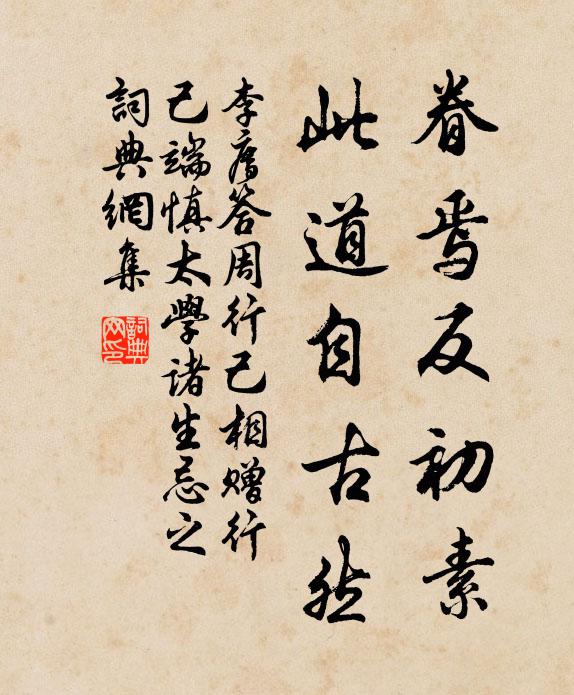 眷焉反初素
此道自古然
李廌答周行己相赠行
己端慎太學诸生忌之
詞典網集
詞典网印